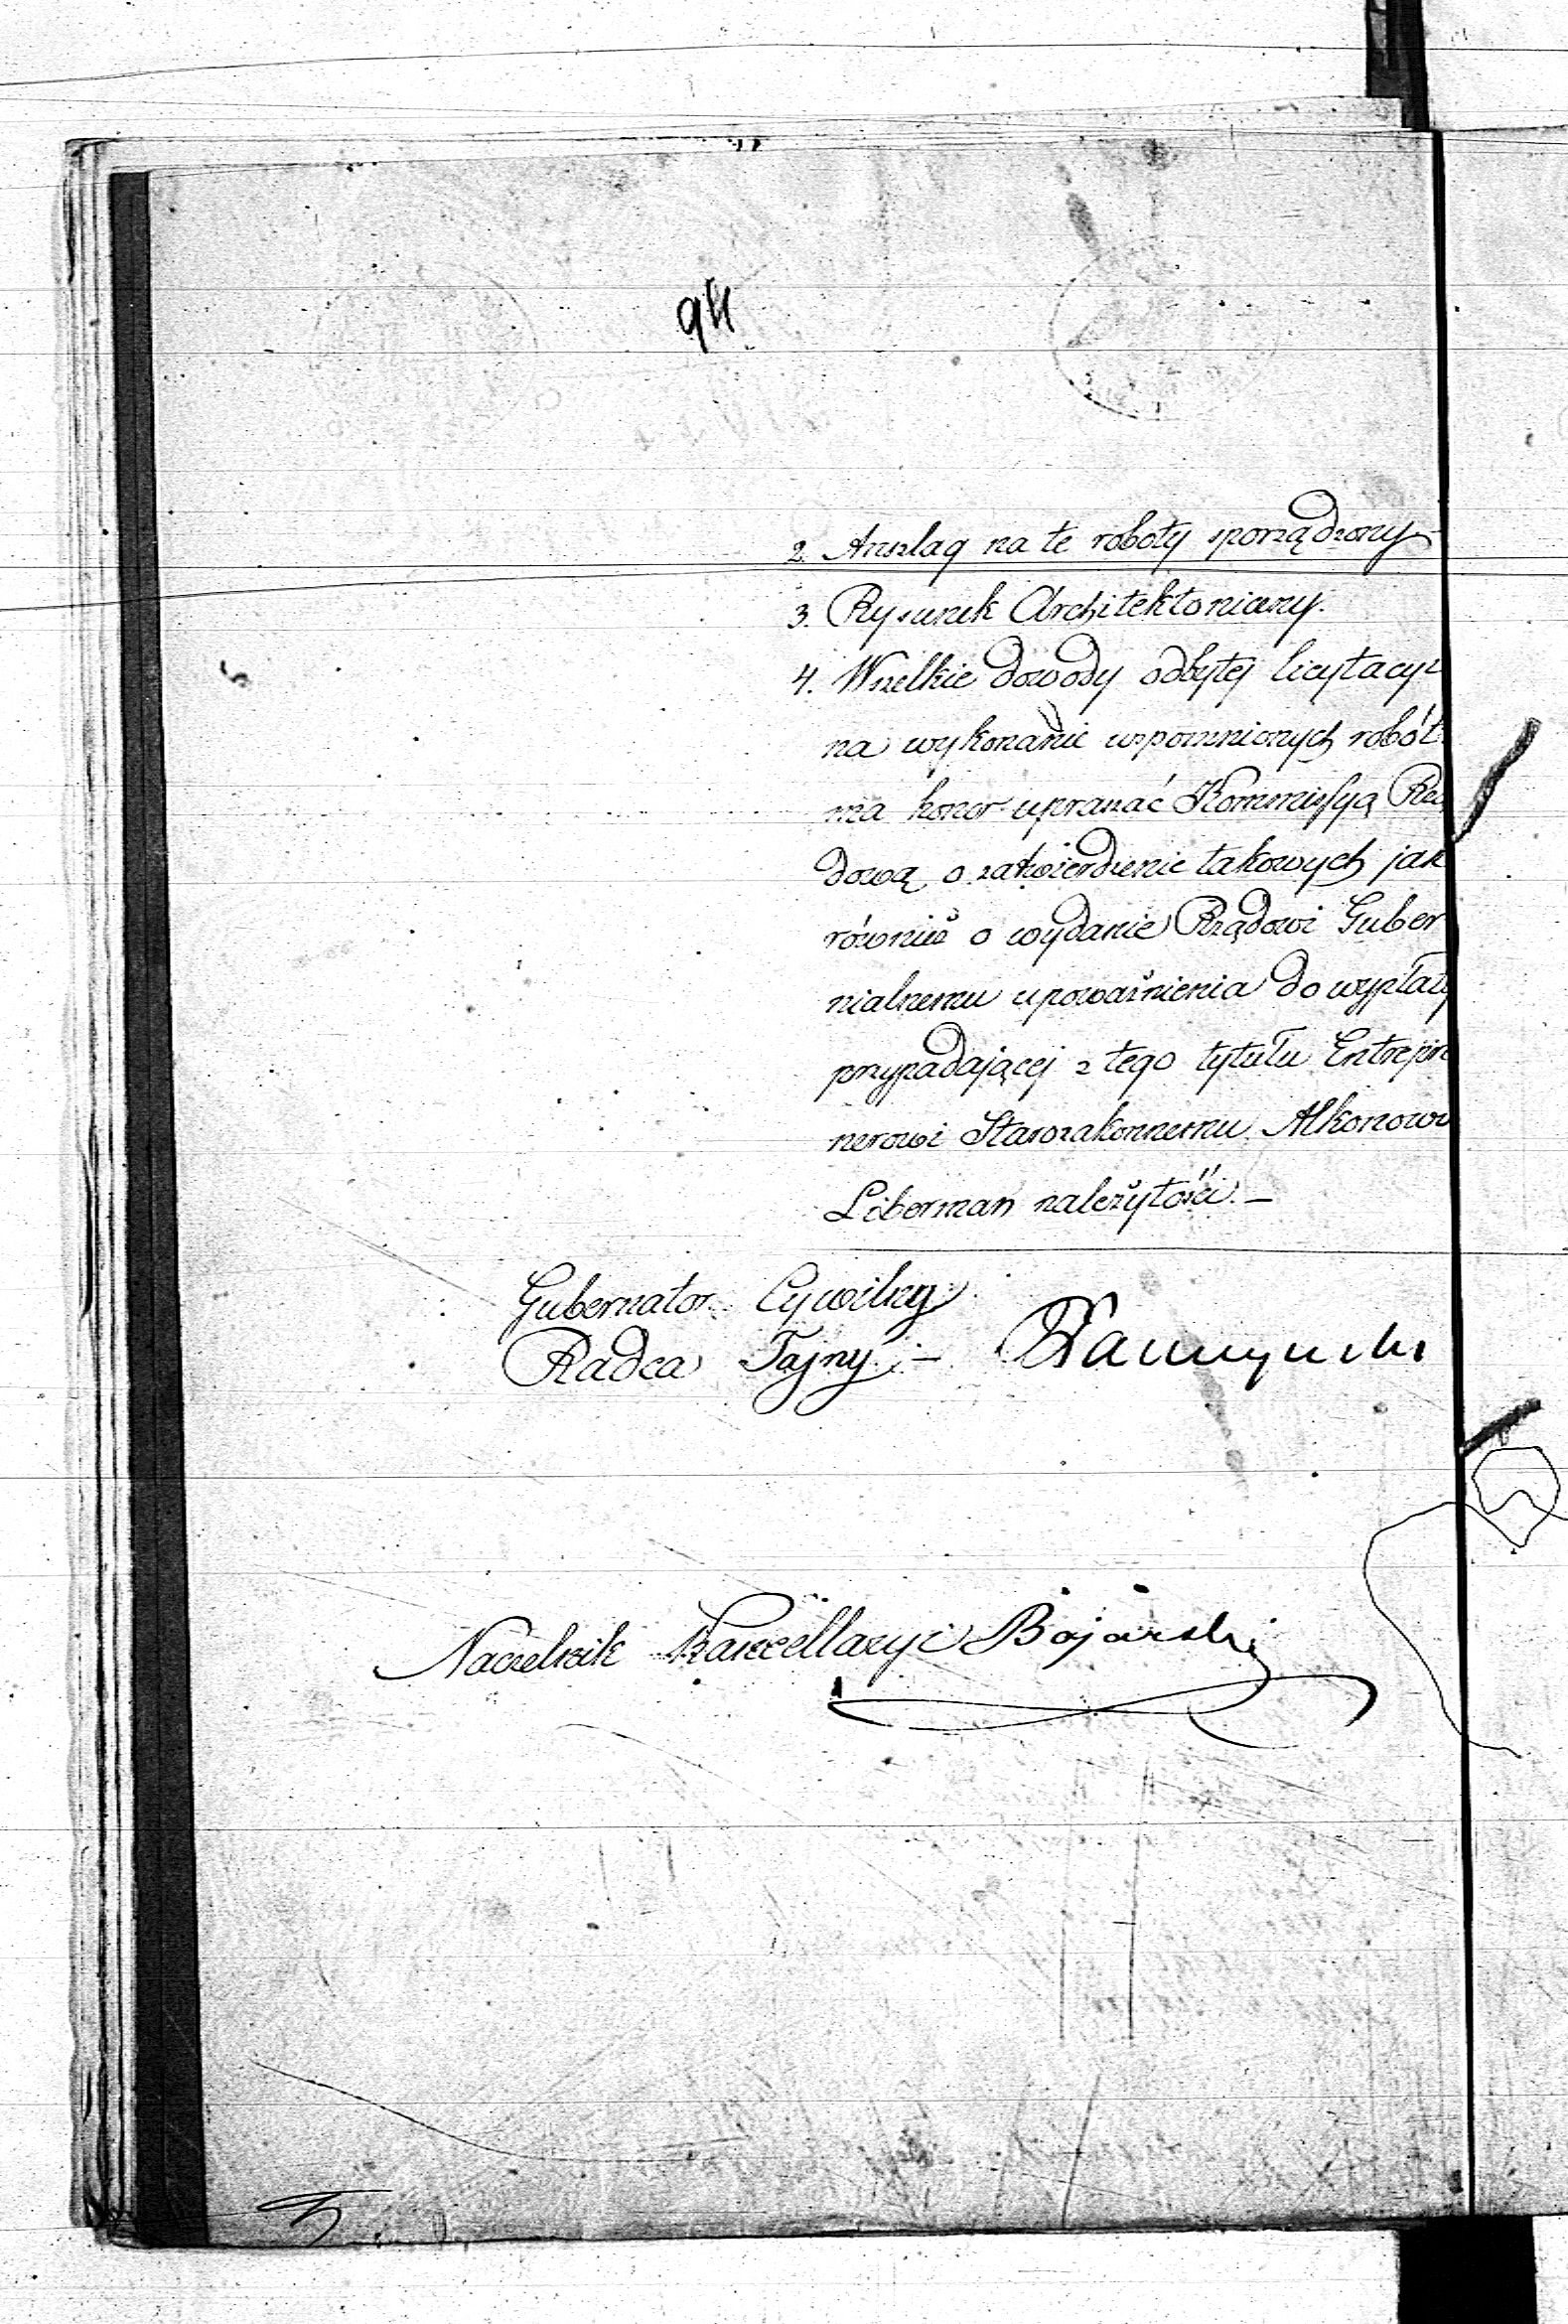 94
2. Anszlag na te roboty sporządzony
3. Rysunek Architektoniczny.
4. Wszelkie dowody odbytej licytacyi
na wykonanie wspomnionych robót
ma honor upraszać Kommissyą Rzą
dową o zatwierdzenie takowych jak
również o wydanie Rządowi Guber
nialnemu upoważnienia do wypłaty
przypadającej z tego tytułu Entrepre
nerowi Starozakonnemu Alkonowi
Liberman należytości. –
Gubernator Cywilny
Radca Tajny –
Naczelnik Kancellaryi Bojarski